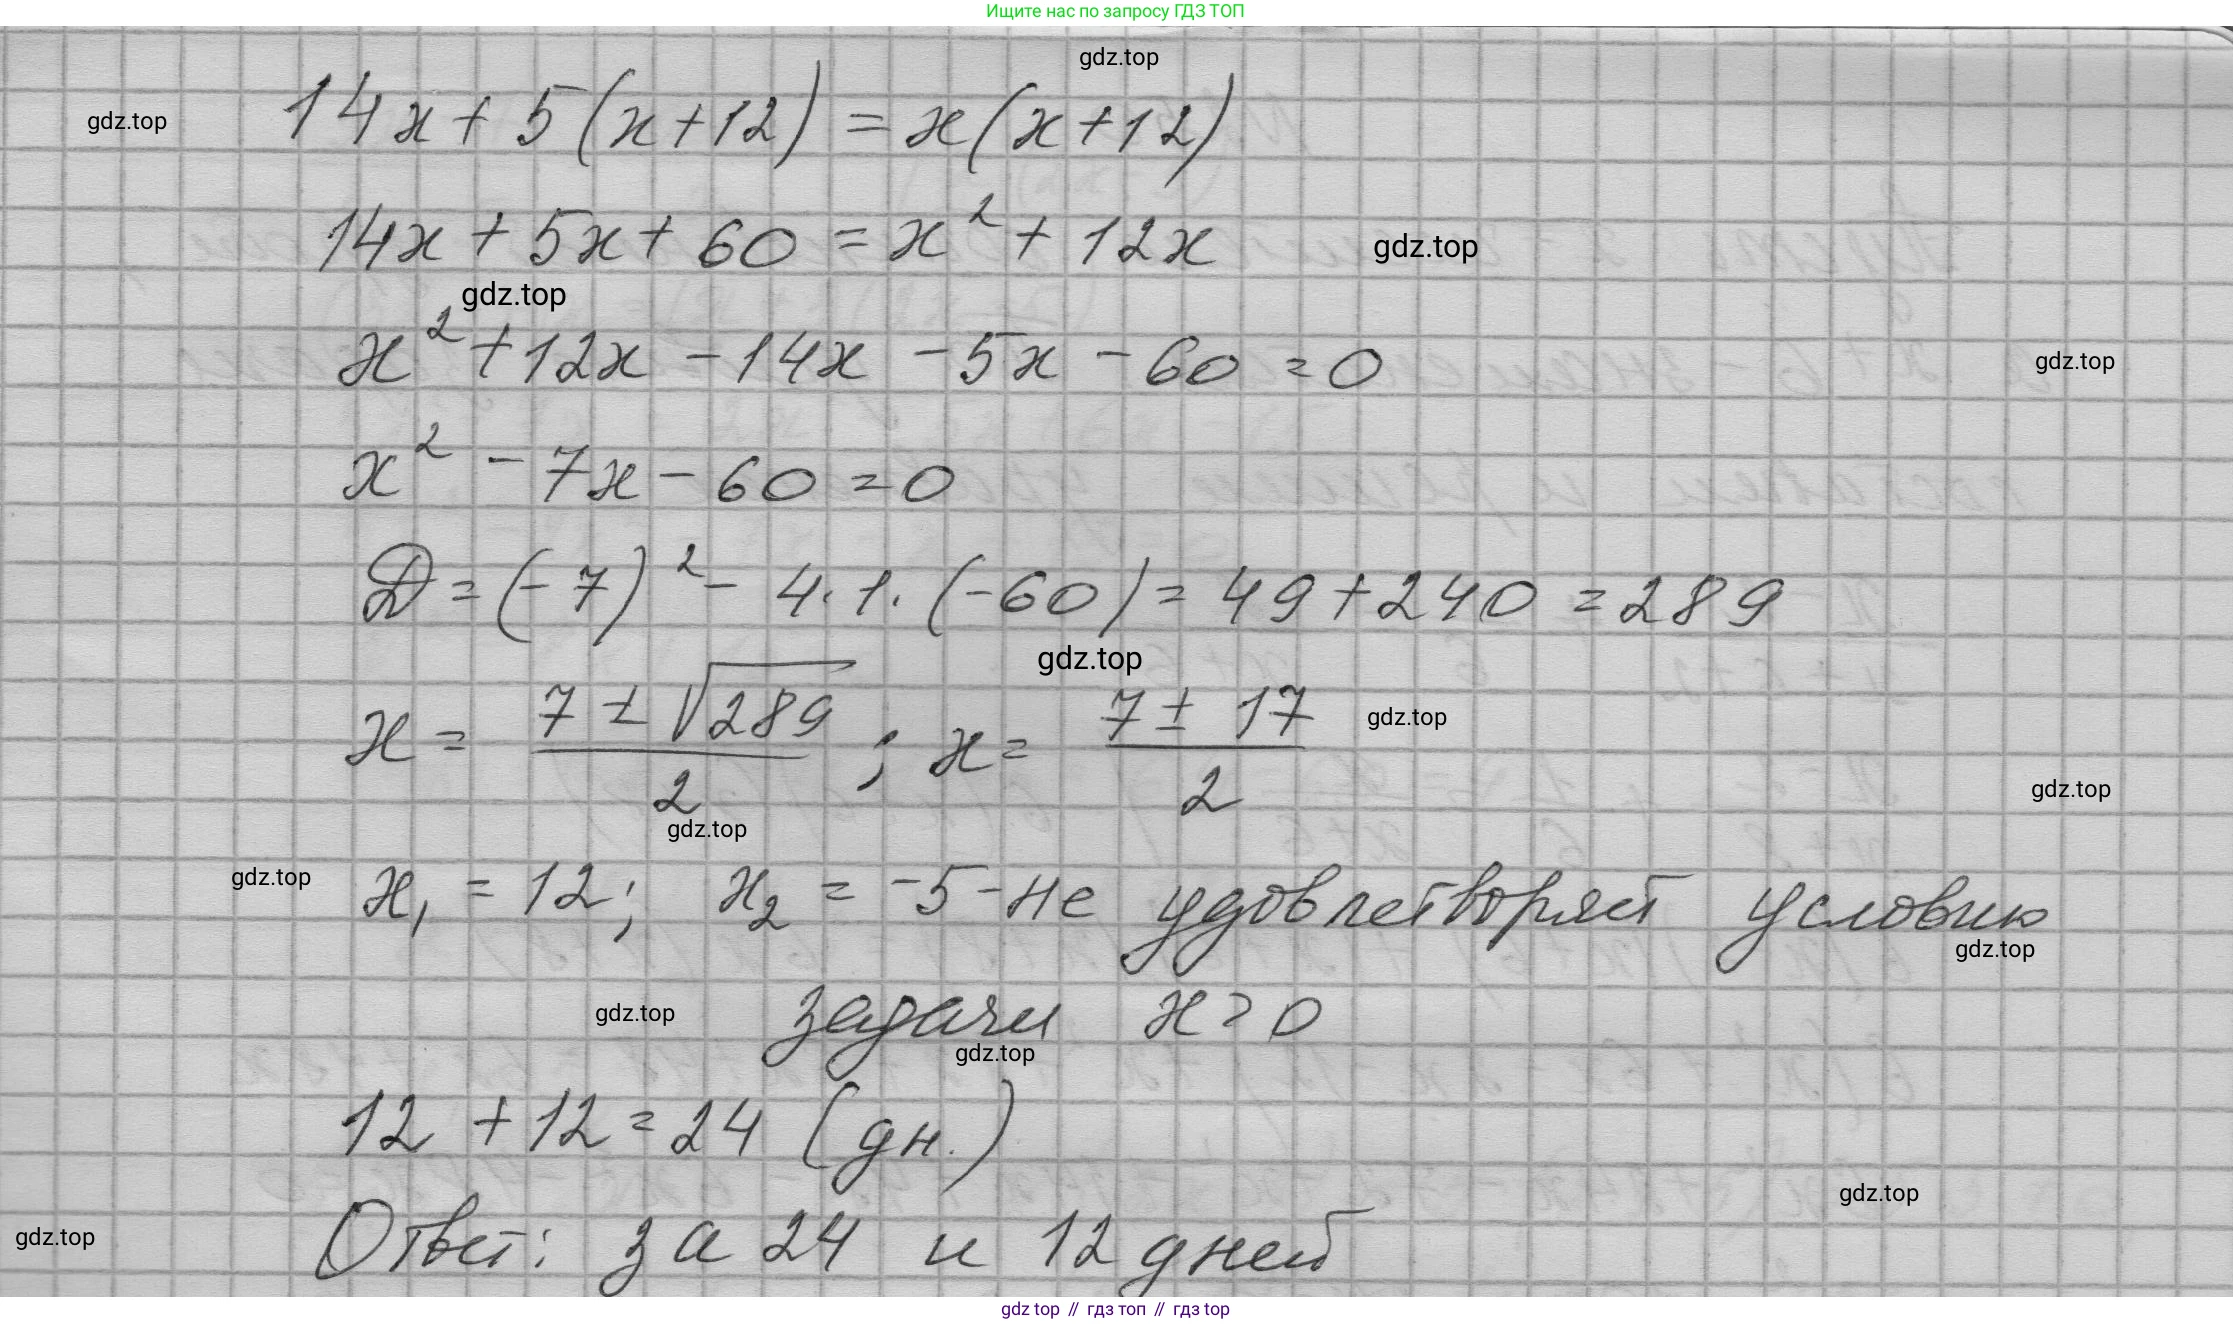 Ищите нас по запросу ГДЗ ТОП
gdz.top
14x + 5(x+12) = x(x+12)
gdz.top
14x + 5x + 60 = x² + 12x
gdz.top
gdz.top
x² + 12x - 14x - 5x - 60 = 0
gdz.top
x² - 7x - 60 = 0
D = (-7)² - 4·1·(-60) = 49 + 240 = 289
gdz.top
x = (7 ± √289)/2 ; x = (7 ± 17)/2
gdz.top
gdz.top
gdz.top
gdz.top
x₁ = 12; x₂ = -5 - не удовлетворяет условию
gdz.top
gdz.top
задачи x > 0
gdz.top
12 + 12 = 24 (дн.)
gdz.top
gdz.top
Ответ: за 24 и 12 дней
gdz top // гдз топ // гдз top